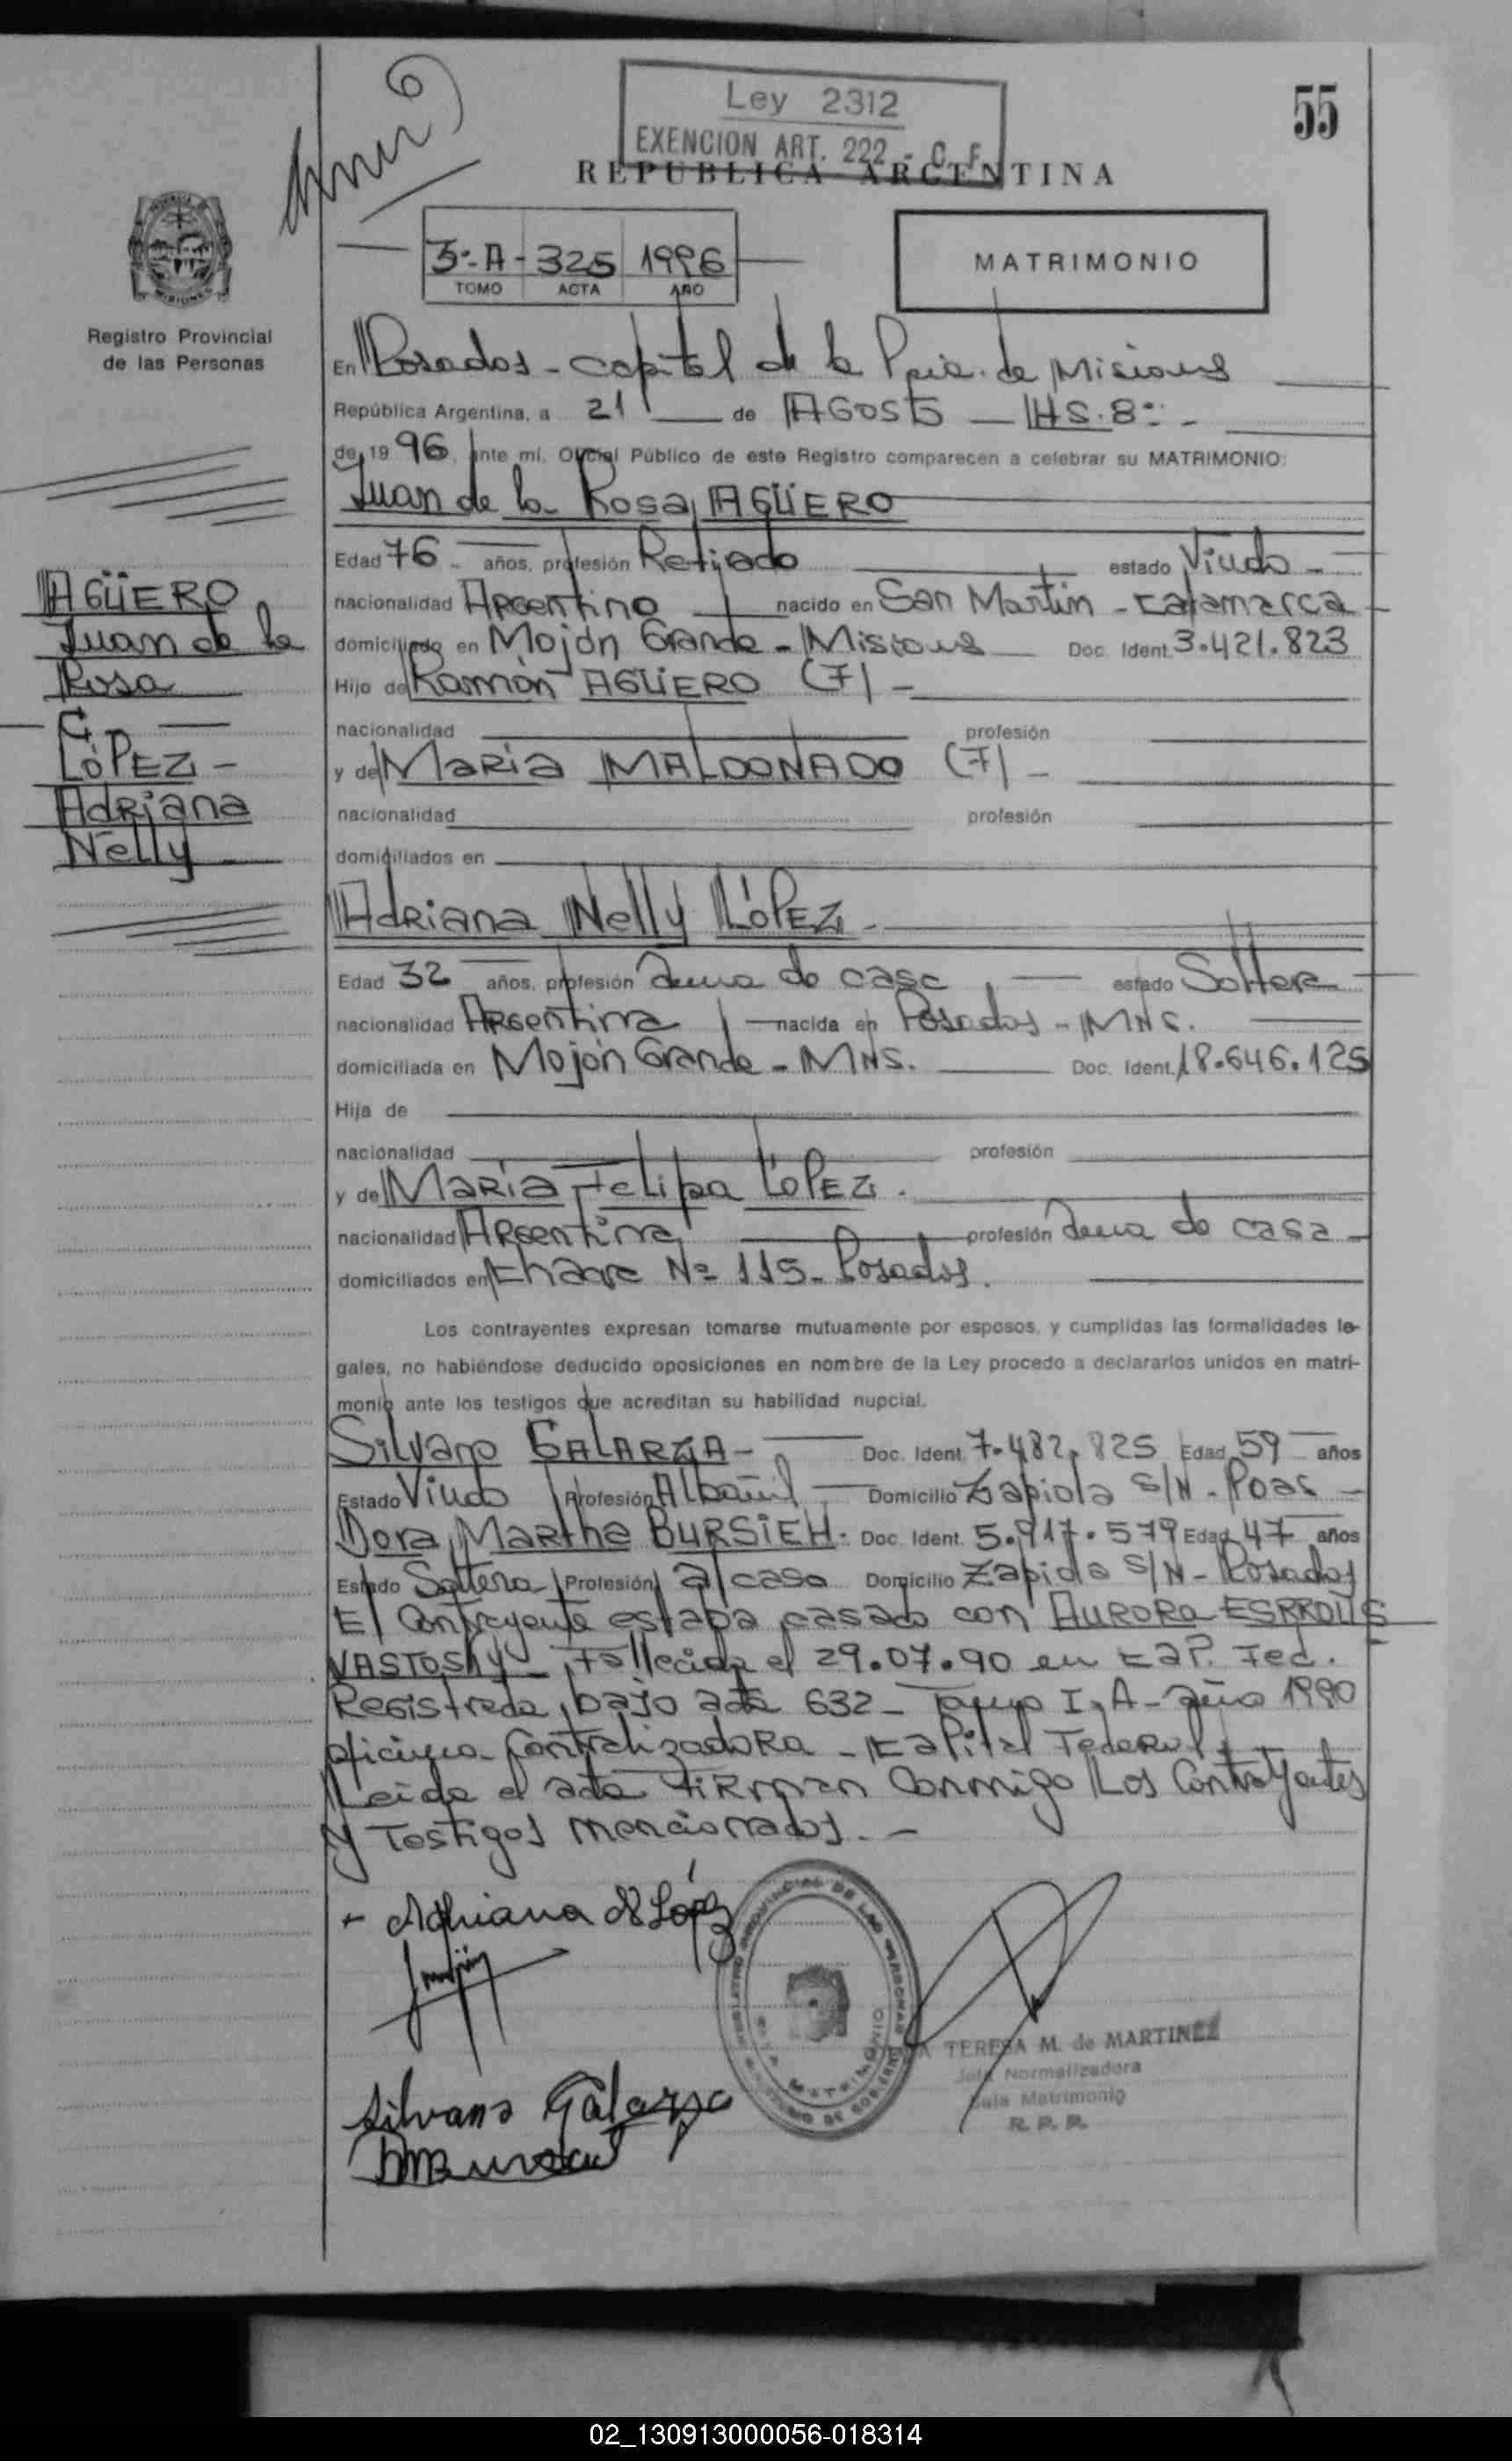 55
Ley 2312
EXENCION ART. 222 - C. F.
REPUBLICA ARGENTINA
3º-A - 325 1996
TOMO ACTA AÑO
MATRIMONIO
Registro Provincial
de las Personas
En Posadas - capital de la Pcia. de Misiones
República Argentina, a 21 de AGOSTO - HS. 8
de 1996, ante mí, Oficial Público de este Registro comparecen a celebrar su MATRIMONIO:
Juan de la Rosa AGÜERO
Edad 76 - años, profesión Retirado estado Viudo -
nacionalidad Argentino nacido en San Martin - Catamarca
domiciliado en Mojón Grande - Misiones Doc. Ident. 3.421.823
Hijo de Ramón AGÜERO (F) -
nacionalidad profesión
y de María MALDONADO (F) -
nacionalidad profesión
domiciliados en
AGÜERO
Juan de la
Rosa
C
LÓPEZ -
Adriana
Nelly
Adriana Nelly LÓPEZ -
Edad 32 años, profesión Ama de casa estado Soltera
nacionalidad Argentina nacida en Posadas - MNS.
domiciliada en Mojón Grande - MNS. Doc. Ident. 18.646.125
Hija de
nacionalidad profesión
y de María Felipa LÓPEZ.
nacionalidad Argentina profesión Ama de casa -
domiciliados en Nº 115 - Posadas.
Los contrayentes expresan tomarse mutuamente por esposos, y cumplidas las formalidades le-
gales, no habiéndose deducido oposiciones en nombre de la Ley procedo a declararlos unidos en matri-
monio ante los testigos que acreditan su habilidad nupcial.
Silvano GALARZA - Doc. Ident. 7.482.825 Edad 59 años
Estado Viudo Profesión Albañil - Domicilio Zapiola S/N - Poas -
Dora Martha BURSIEH - Doc. Ident. 5.917.579 Edad 47 años
Estado Soltera Profesión a/casa Domicilio Zapiola S/N - Posadas
El Contrayente estaba casado con AURORA
fallecida el 29.07.90 en Cap. Fed.
Registrada bajo acta 632 - Tomo I, A - año 1990
oficina Centralizadora - Capital Federal
Leida el acta firman conmigo los contrayentes
y Testigos mencionados. -
Adriana N López
REGISTRO PROVINCIAL DE LAS PERSONAS
MATRIMONIO
TERESA M. de MARTINEZ
Jefa Normalizadora
Sala Matrimonio
R. P. P.
Silvano Galarza
02_130913000056-018314